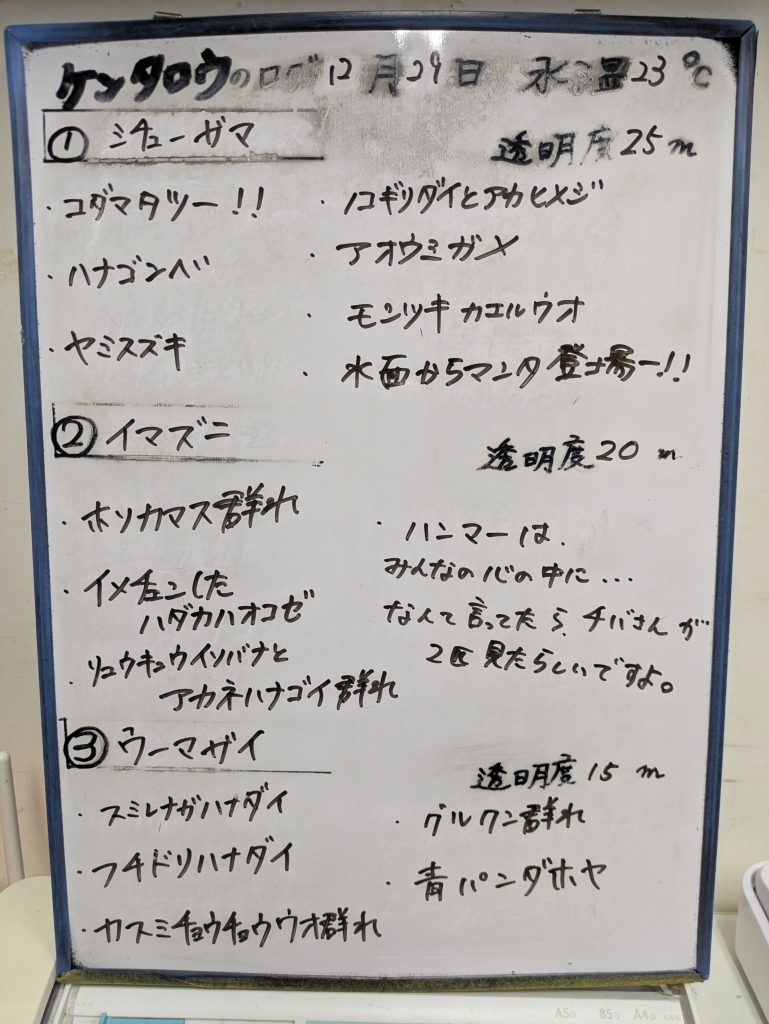 ケンタロウのログ 12月29日 水温23℃
① ミチューガマ 透明度25m
・コダマタツー!!
・ハナゴンベ
・ヤミスズキ
・ノコギリダイとアカヒメジ
・アオウミガメ
・モンツキカエルウオ
・水面からマンタ登場ー!!
② イマズニ 透明度20m
・ホソカマス群れ
・イメチェンした
ハダカハオコゼ
・リュウキュウイソバナと
アカネハナゴイ群れ
・ハンマーは、
みんなの心の中に...
なんて言ってたら、チバさんが
2匹見たらしいですよ。
③ ウーマザイ 透明度15m
・スミレナガハナダイ
・フチドリハナダイ
・カスミチョウチョウウオ群れ
・グルクン群れ
・青パンダホヤ
A5 B5 A4